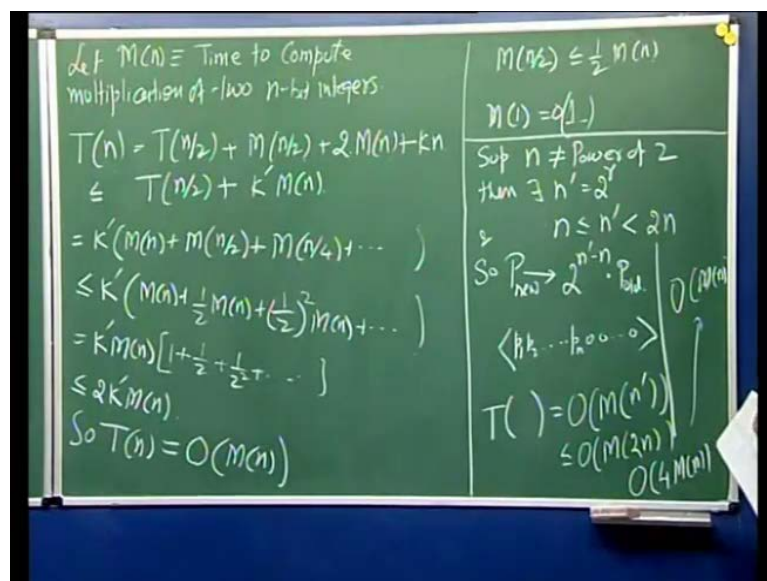 Let M(n) ≡ Time to Compute
multiplication of two n-bit integers.
T(n) = T(n/2) + M(n/2) + 2M(n) + kn
≤ T(n/2) + K'M(n).
= K'(M(n) + M(n/2) + M(n/4) + ⋯ )
≤ K'(M(n) + 1/2 M(n) + (1/2)² M(n) + ⋯ )
= K'M(n)[1 + 1/2 + 1/2² + ⋯ ]
≤ 2K'M(n).
So T(n) = O(M(n))
M(n/2) ≤ 1/2 M(n)
M(1) = O(1)
Sup n ≠ Power of 2
then ∃ n' = 2^r
& n ≤ n' < 2n
So P_new → 2^(n'-n) · P_old.
⟨p₁p₂ ⋯ pₙ 0 0 ⋯ 0⟩
T( ) = O(M(n'))
≤ O(M(2n))
O(4M(n))
O(M(n))